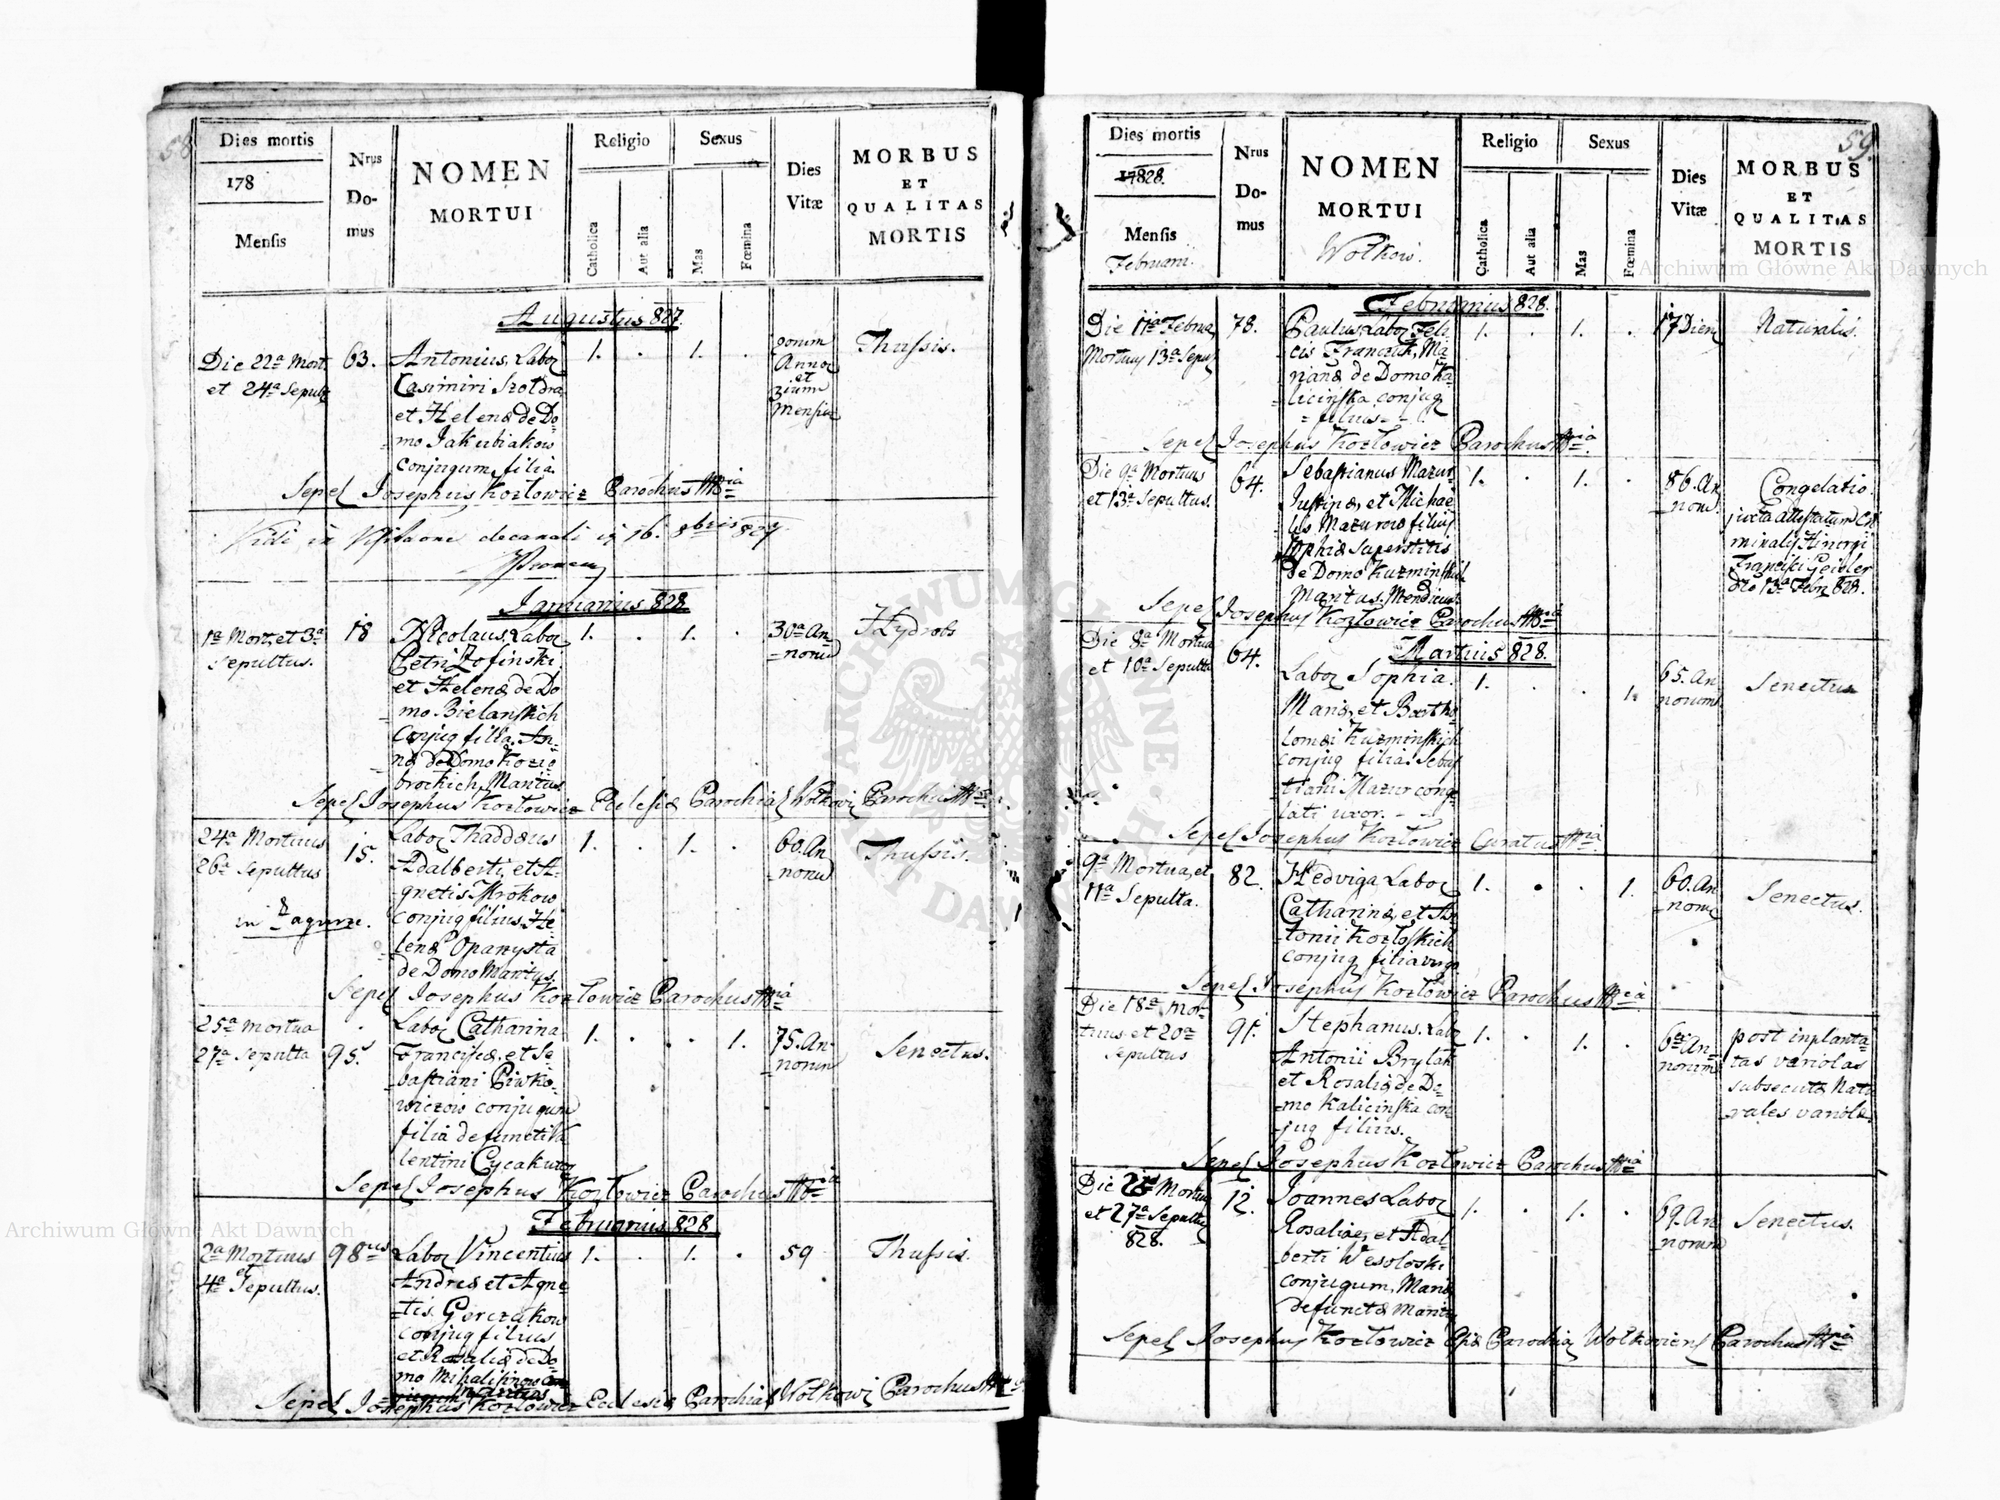 58
Dies mortis
178
Mensis
Nrus
Do-
mus
NOMEN
MORTUI
Religio
Catholica
Aut alia
Sexus
Mas
Fœmina
Dies
Vitæ
MORBUS
ET
QUALITAS
MORTIS
Augustus 827.
Die 22a Mort.
et 24a Sepult
63.
Antonius, Laboz
Casimiri Szoldra
et Helenæ de Do=
=mo Jakubiakow
conjugum filia.
1. . 1. .
Annoz
et
Mensiu
Thussis.
Sepel Josephus Kozlowicz Parochus
Vidi in decanali 16. 8bris 827
Januarius 828.
1a Mort, et 3a
Sepultus.
18
Nicolaus, Laboz
Petri Zofinski
et Helenæ de Do
=mo Bielanskich
Conjug filia. An=
=næ de Domo Kozio
brockich, Maritus
1. . 1. .
30a An=
=norum
Hydrobs
Sepel Josephus Kozlowicz Eclesiæ Parochial Wolkow Parochus
24a Mortuus
26a Sepultus
15.
Laboz Thaddæus
Adalberti, et A=
gnetis Mrokow
conjug filius. He
lenæ Opanysta
de Domo Maritus.
1. . 1. .
60. An
norum
Thussis.
Sepel Josephus Kozlowicz Parochus
25a Mortua
27a Sepulta
95.
Laboz Catharina
Francisca, et Se
bastiani Piwko=
wiczow conjugum
filia defuncti Va
lentini Cycak uxor
1. . . 1.
75. An=
=norum
Senectus.
Sepel Josephus Kozlowicz Parochus
Februarius 828.
2a Mortuus
et
4a Sepultus.
98
Laboz Vincentius
Andreæ et Agne
=tis. Gerczakow
conjug filius
et Rosaliæ de Do=
1. . 1. .
59
Thussis.
Sepel Josephus Kozlowicz Eclesiæ Parochial Wolkow Parochus
59.
Dies mortis
17828.
Mensis
Februarii.
Nrus
Do-
mus
NOMEN
MORTUI
Wolkow.
Religio
Catholica
Aut alia
Sexus
Mas
Fœmina
Dies
Vitæ
MORBUS
ET
QUALITAS
MORTIS
Februarius 828.
Die 11a Februa
Mortuus 13a Sepul
78.
Paulus, Laboz Feli
cis Franczuk, Ma
rianæ de Domo Ka
licinska conjug
= filius - -
1. . 1. .
17 Dieru
Naturalis.
Sepel Josephus Kozlowicz Parochus
Die 9a Mortuus
et 13a Sepultus.
64.
Sebastianus Mazur
Justinæ, et Michae
lis Mazurow filius
Sophiæ Superstitis
de Domo Kuzminskich
Maritus, Mendicus.
1. . 1. .
86. An
=noru
Congelatio
juxta attestatum Cri
minalis
Francisci Geisler
dto 13a Febr 828.
Sepel Josephus Kozlowicz Parochus
Martius 828.
Die 8a Mortua
et 10a Sepulta
64.
Laboz Sophia.
Mariæ, et Bartho
lomæi Kuzminskich
conjug filia. Sebas
tiani Mazur conge
lati uxor. - -
1. . . 1.
65. An
norum
Senectus
Sepel Josephus Kozlowicz Curatus
9a Mortua, et
11a Sepulta.
82.
Hedviga, Laboz
Catharinæ, et An
tonii Kozloskich
conjug filia virgo
1. . . 1.
60. An
=noru
Senectus.
Sepel Josephus Kozlowicz Parochus
Die 18a Mor=
tuus et 20a
Sepultus
91.
Stephanus. Labz
Antonii Brylak
et Rosaliæ de Do=
=mo Kalicinska con=
=jug filius.
1. . 1. .
6a An=
norum
post inplanta=
tas variolas
subsecutæ Natu
rales variolæ
Sepel Josephus Kozlowicz Parochus
Die Mortuu
et 27a Sepultus
828.
12.
Joannes Laboz
Rosaliæ, et Adal=
berti Wesoloski
conjugum, Mariæ
defunctæ Maritus
1. . 1. .
69. An
=norum
Senectus.
Sepel Josephus Kozlowicz Parochia Wolkoviens Parochus
Archiwum Główne Akt Dawnych
Archiwum Główne Akt Dawnych